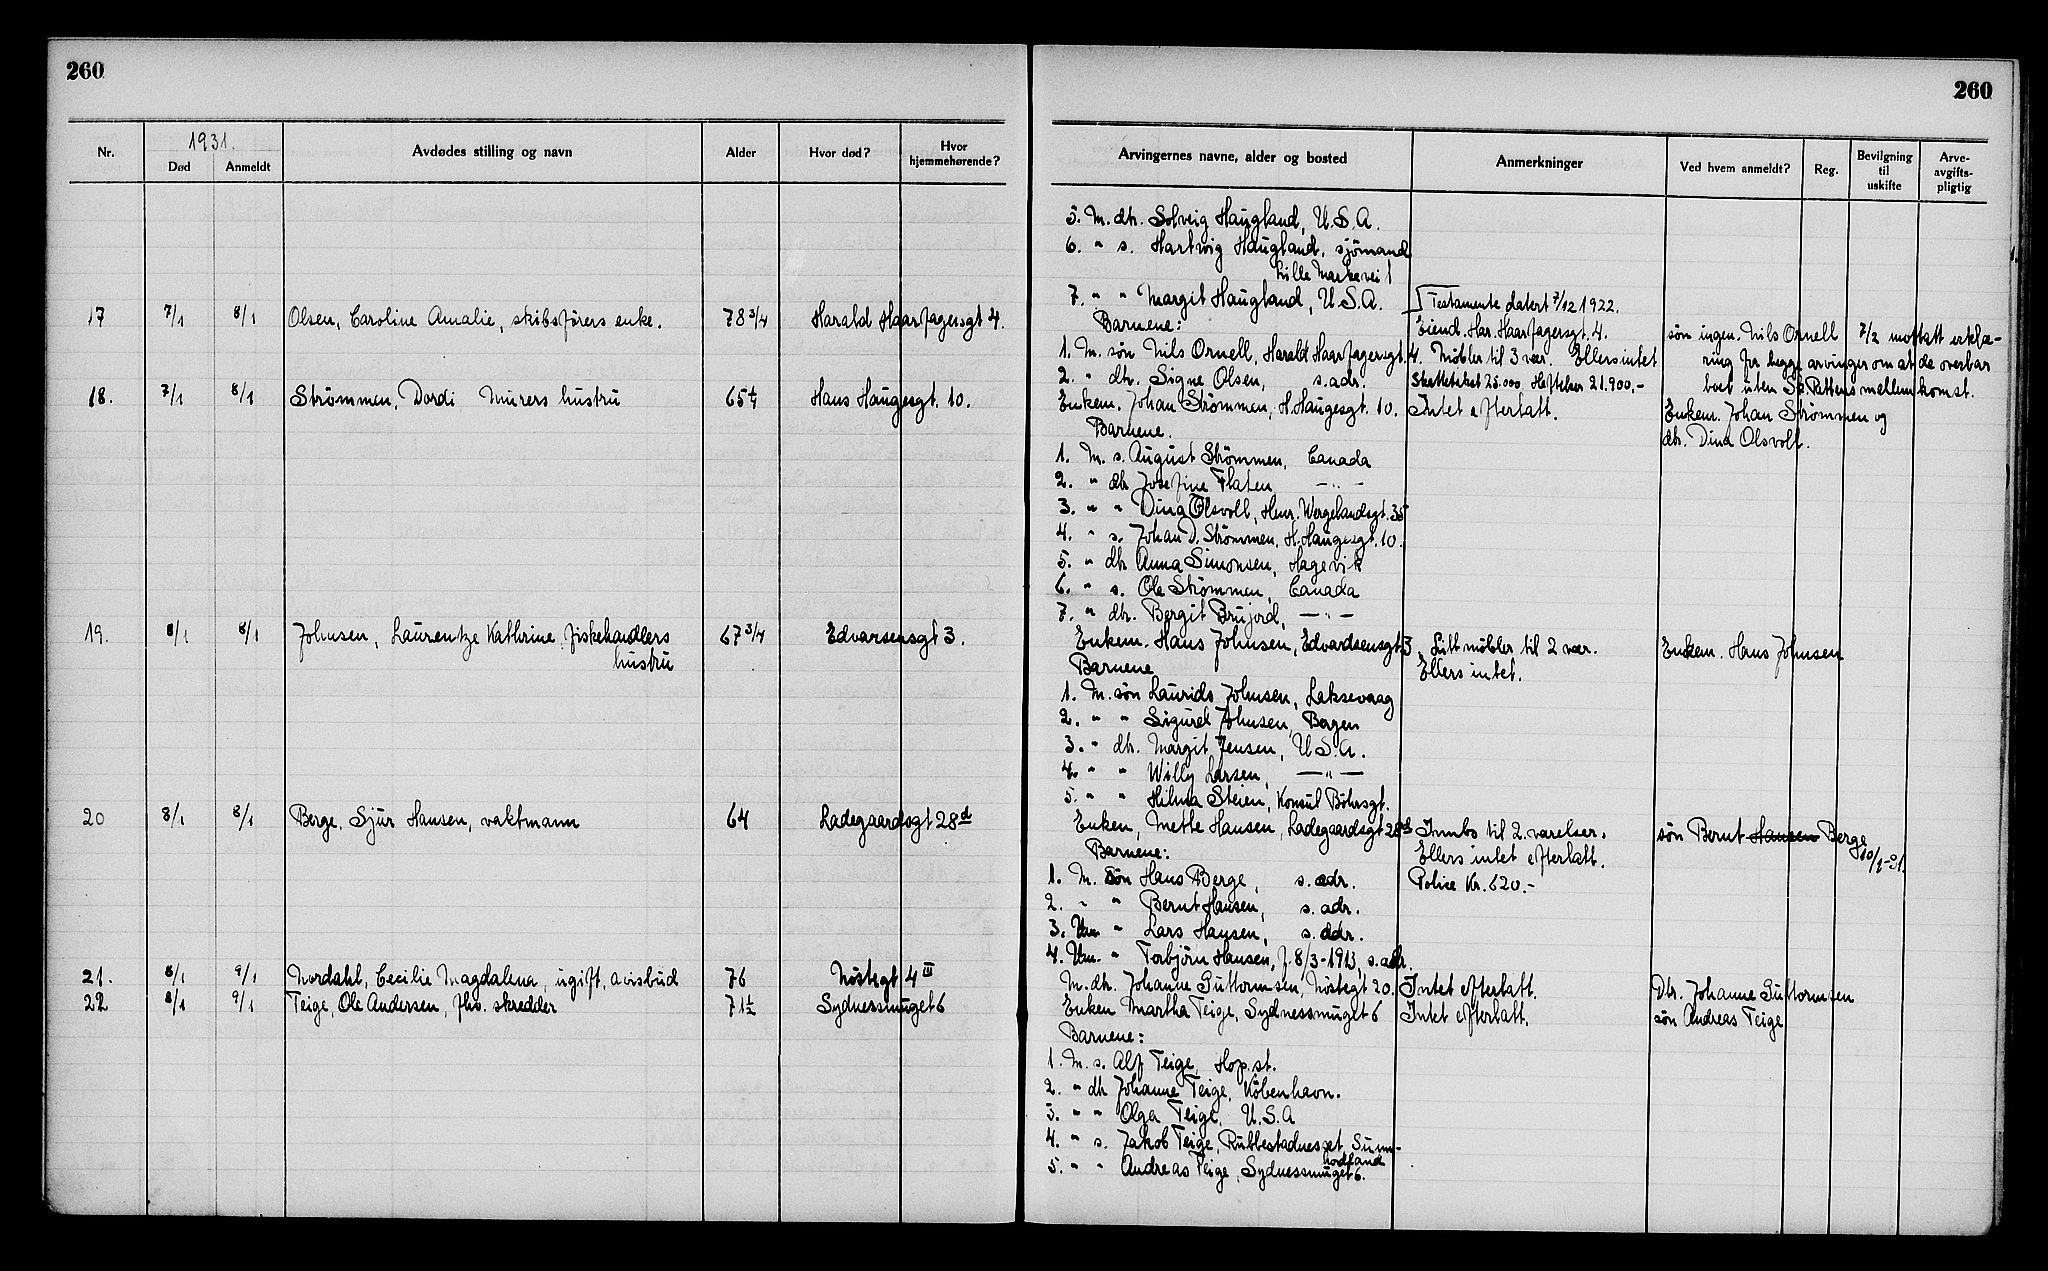 260
260
1931.
Nr. Død Anmeldt Avdødes stilling og navn Alder Hvor død? Hvor hjemmehørende?
Arvingernes navne, alder og bosted Anmerkninger Ved hvem anmeldt? Reg. Bevilgning til uskifte Arve-avgifts-pligtig
5. M. dtr. Solveig Haugland, U.S.A.
6. " s. Hartvig Haugland, sjømand
Lille Markevei 1
7. " " Margit Haugland, U.S.A.
17 7/1 8/1 Olsen, Caroline Amalie, skibsførers enke. 78 3/4 Harald Haarfagersgt 4.
Barnene:
1. M. søn Nils Ornell, Harald Haarfagersgt. 4.
2. " dtr. Signe Olsen, s.adr.
Testamente datert 7/12 1922.
Eiend. Har. Haarfagersgt. 4.
Møbler til 3 vær. Ellers intet
Skattetakst 25.000 Heftelser 21.900.-
søn ingen. Nils Ornell 7/2 mottatt erklæ-
ring fra begge arvinger om at de overtar
boet uten Sk.Rettens mellemkomst.
18. 7/1 8/1 Strømmen, Dordi Murers hustru 65 1/4 Hans Haugesgt. 10.
Enkem. Johan Strømmen, H. Haugesgt. 10. Intet efterlatt. Enkem. Johan Strømmen og
dtr. Dina Olsvoll.
Barnene.
1. M. s. August Strømmen, Canada
2. " dtr Josefine Flaten — " —
3. " " Dina Olsvoll, Henr. Wergelandsgt. 35
4. " s. Johan D. Strømmen, H. Haugesgt. 10.
5. " dtr Anna Simonsen, Hagevik
6. " s. Ole Strømmen, Canada
7. " dtr. Bergit Brujord, — " —
19. 8/1 8/1 Johnsen, Laurentze Kathrine, fiskehandlers
hustru
67 3/4 Edvarsensgt 3.
Enkem. Hans Johnsen, Edvardsensgt 3. Litt møbler til 2 vær. Enkem. Hans Johnsen
Barnene Ellers intet.
1. M. søn Laurids Johnsen, Laksevaag
2. " " Sigurd Johnsen, Bergen
3. " dtr. Margit Jensen, U.S.A.
4. " " Willy Larsen, — " —
5. " " Hilma Steien, Konsul Böhrsgt.
20 8/1 8/1 Berge, Sjur Hansen, vaktmann 64 Ladegaardsgt 28d
Enken, Mette Hansen, Ladegaardsgt 28d Innbo til 2. værelser. søn Bernt Hansen Berge
Barnene: Ellers intet efterlatt. 10/1-31.
1. M. søn Hans Berge, s. adr. Police Kr. 620.-
2. " " Bernt Hansen, s. adr.
3. Um " Lars Hansen, s. adr.
4. Um. " Torbjörn Hansen, f. 8/3-1913, s. adr.
21. 8/1 9/1 Nordahl, Cecilie Magdalena, ugift, avisbud 76 Nøstegt 4 III
M. dtr. Johanne Guttormsen, Nøstegt 20. Intet efterlatt. Dtr. Johanne Guttormsen
22 8/1 9/1 Teige, Ole Andersen, fhv. skredder 71 1/2 Sydnessmuget 6
Enken Martha Teige, Sydnessmuget 6 Intet efterlatt. søn Andreas Teige
Barnene:
1. M. s. Alf Teige, Hop st.
2. " dtr Johanne Teige, København.
3. " " Olga Teige, U.S.A
4. " s. Jakob Teige, Rubbestadnesset, Sunn-
hordland
5. " " Andreas Teige, Sydnessmuget 6.